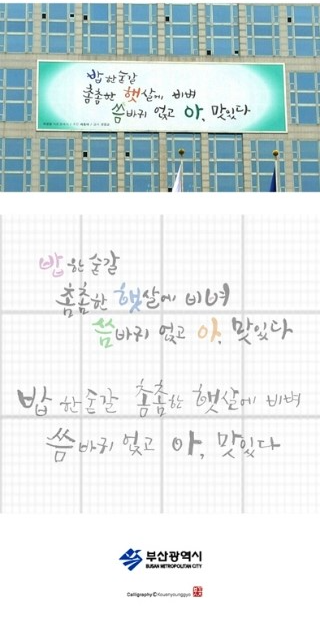 밥 한 숟갈
촘촘한 햇살에 비벼
씀바귀 얹고 아, 맛있다
밥 한 숟갈
촘촘한 햇살에 비벼
씀바귀 얹고 아, 맛있다
밥 한숟갈 촘촘한 햇살에 비벼
씀바귀 얹고 아, 맛있다
부산광역시
BUSAN METROPOLITAN CITY
Calligraphy ⓒ Kouenyounggyo